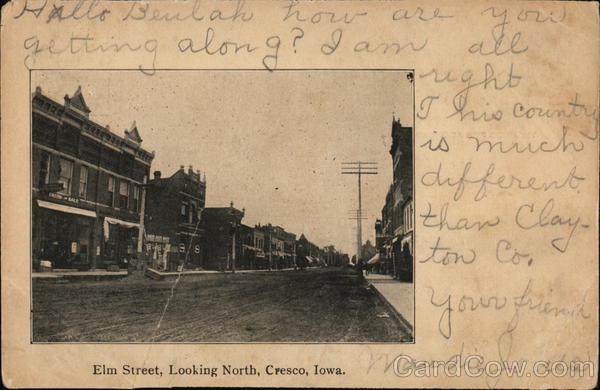 Hallo Beulah how are you
getting along? I am all
right
This country
is much
different
than Clay-
ton Co.
Your friend
Elm Street, Looking North, Cresco, Iowa.
CardCow.com